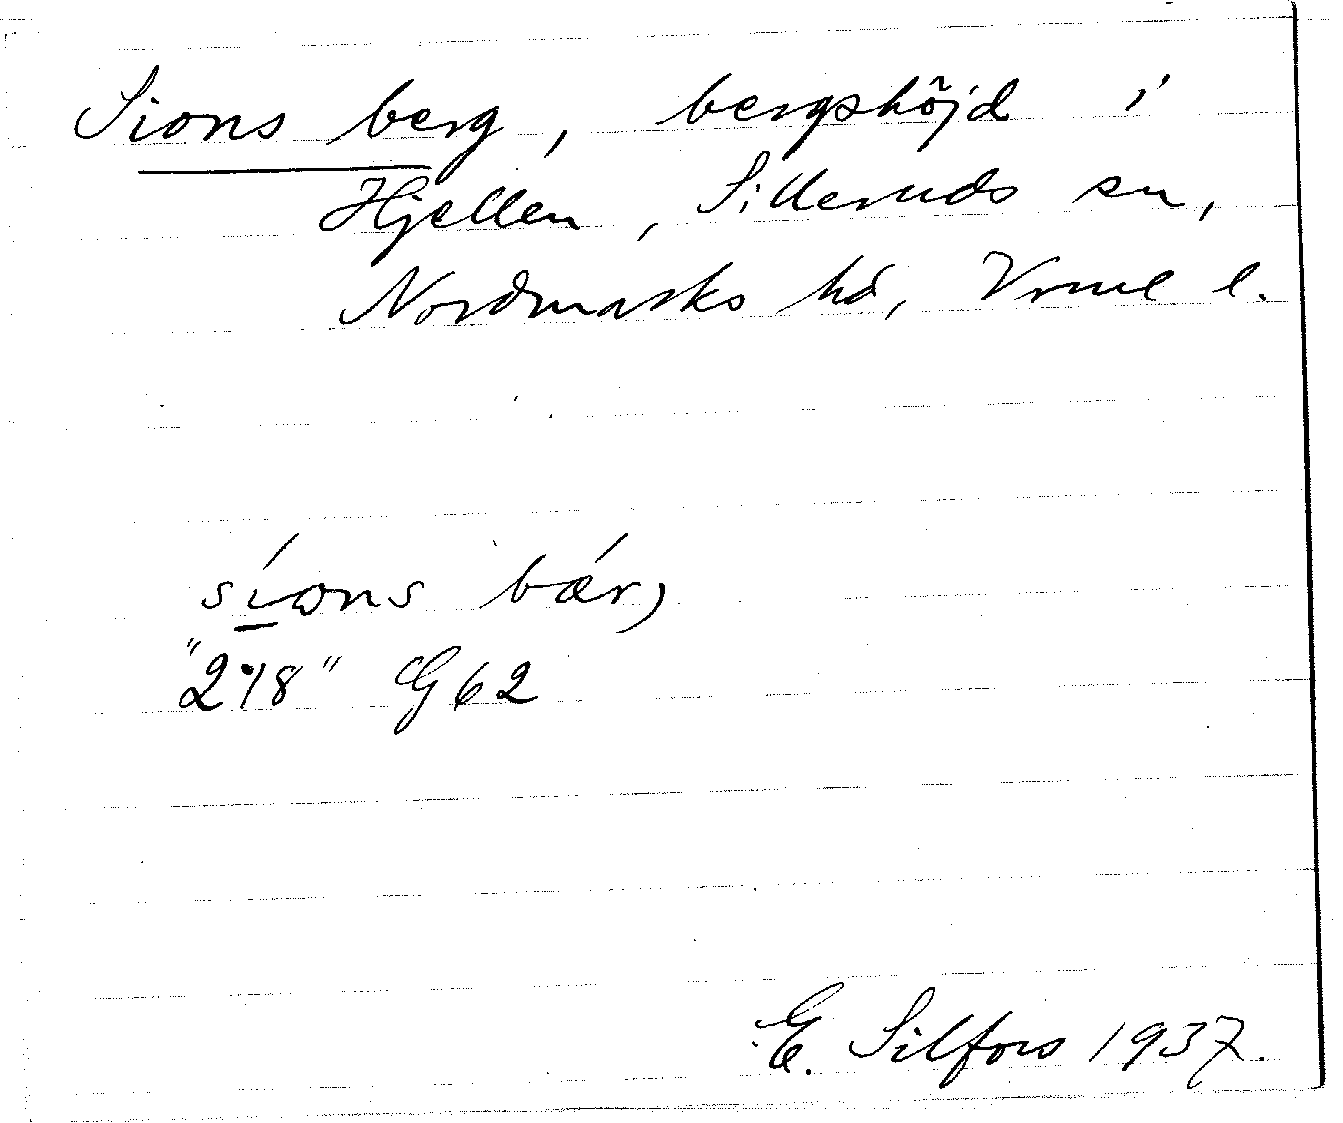 Sions berg, bergshöjd i
Hjellen, Silleruds sn,
Nordmarks hd, Vrml l.
síons bær,
"278" G 62
E. Silfors 1937.